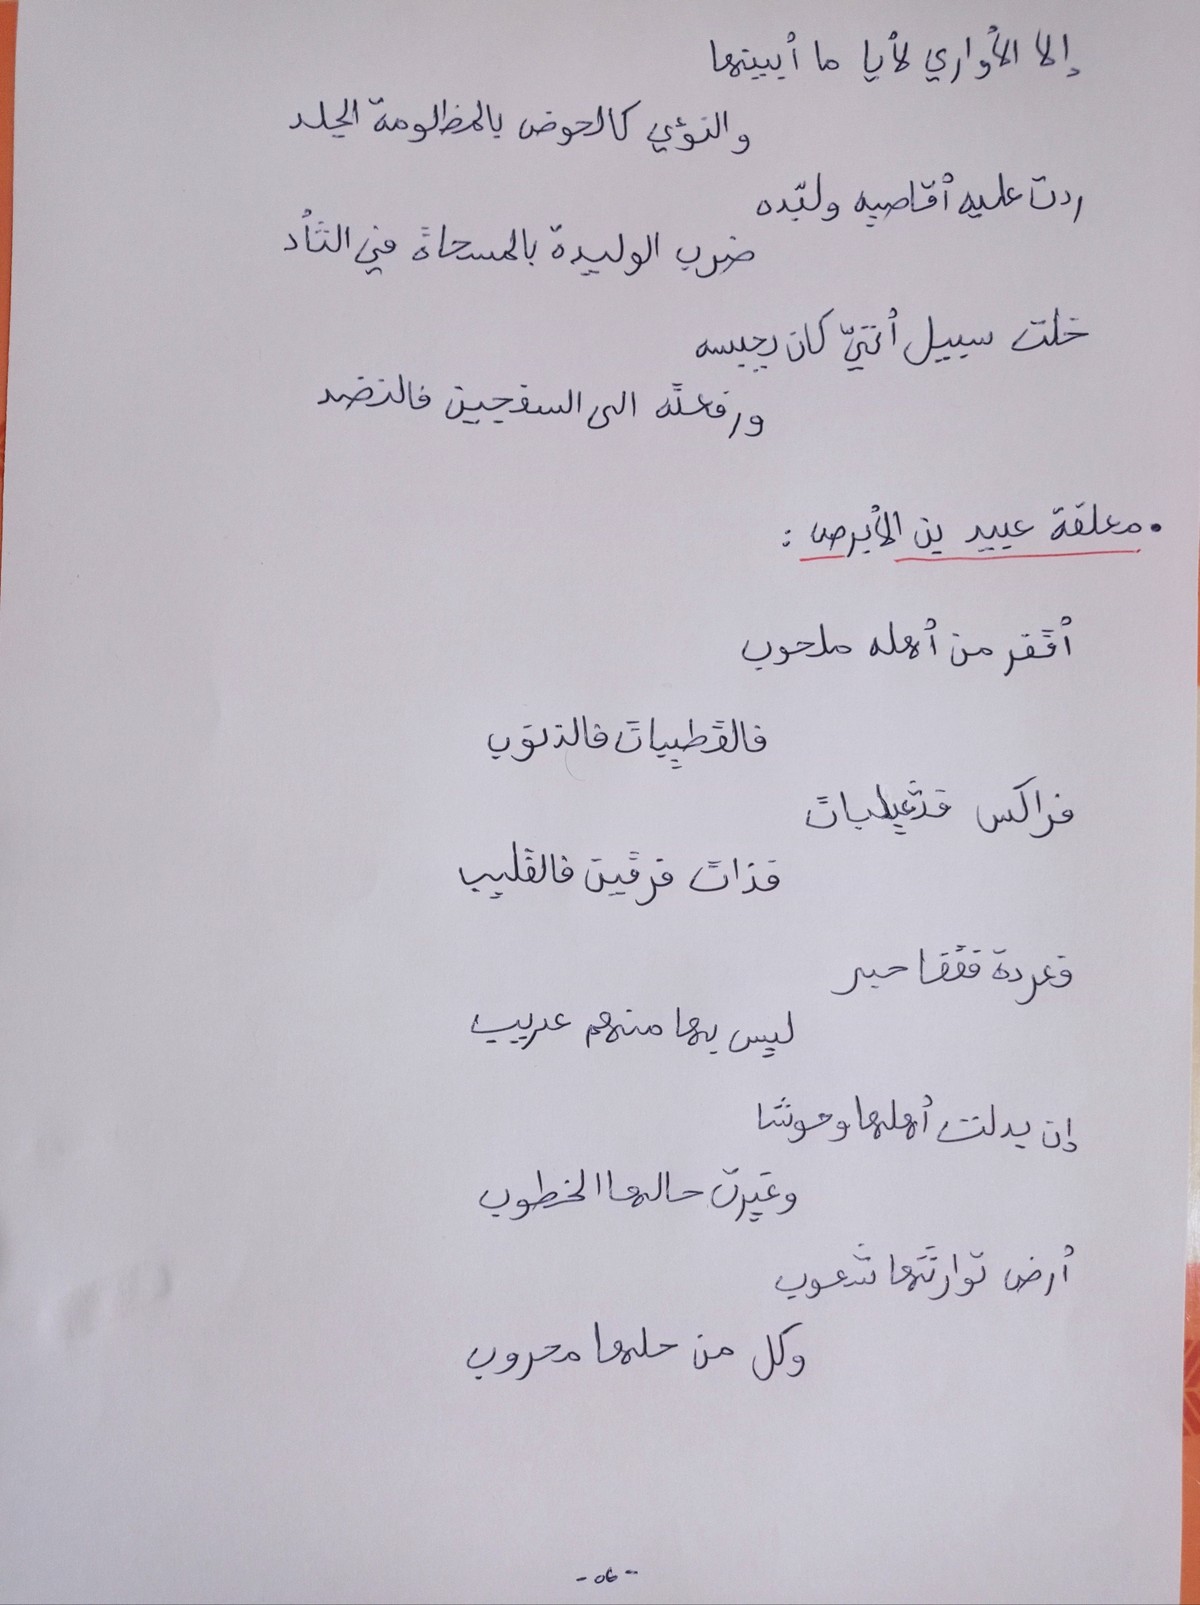 إلا الأواري لأيا ما أبينها
والنؤي كالحوض بالمظلومة الجلد
ردت عليه أقاصيه ولبّده
ضرب الوليدة بالمسحاة في الثأد
خلت سبيل أتيّ كان يحبسه
ورفعته الى السفجين فالنضد
• معلقة عبيد بن الأبرص :
أقفر من أهله ملحوب
فالقطبيات فالذنوب
فراكس فثعيلبات
فذات فرقين فالقليب
فعردة فقفا حبر
ليس بها منهم عريب
إن بدلت أهلها وحوشا
وغيرت حالها الخطوب
أرض توارثها شعوب
وكل من حلها محروب
- 06 -